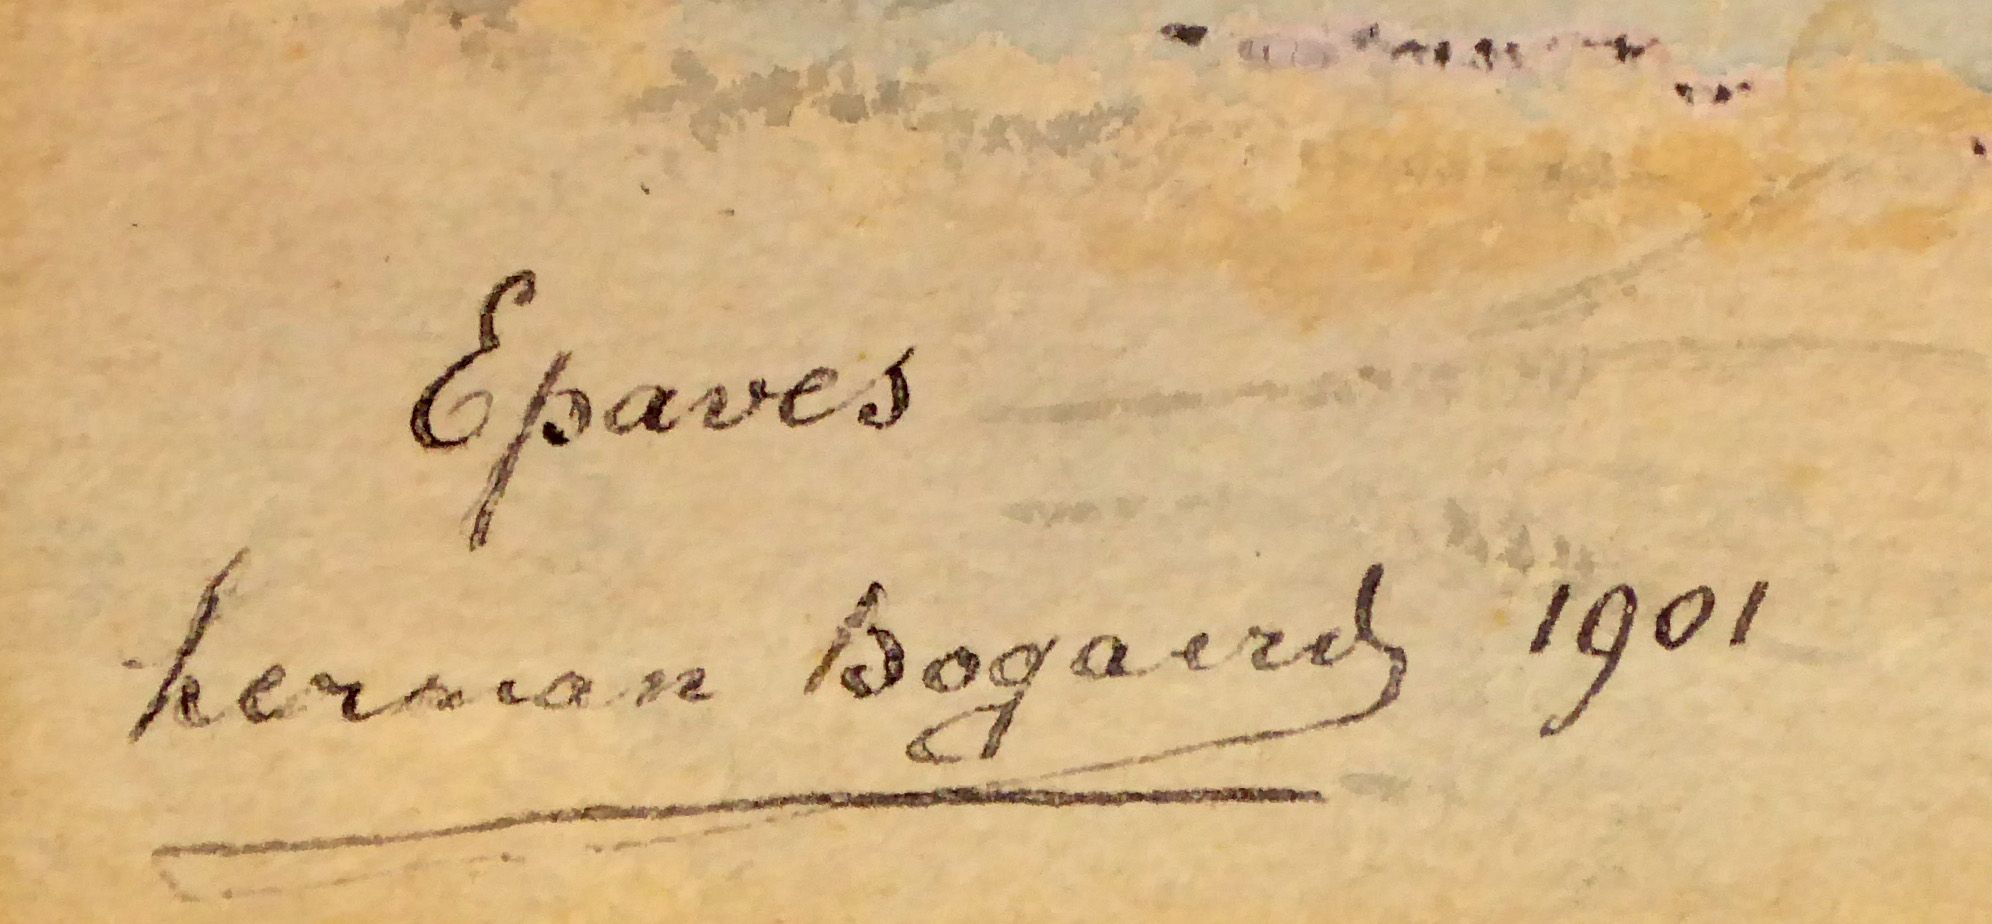 Epaves
herman Bogaerd 1901